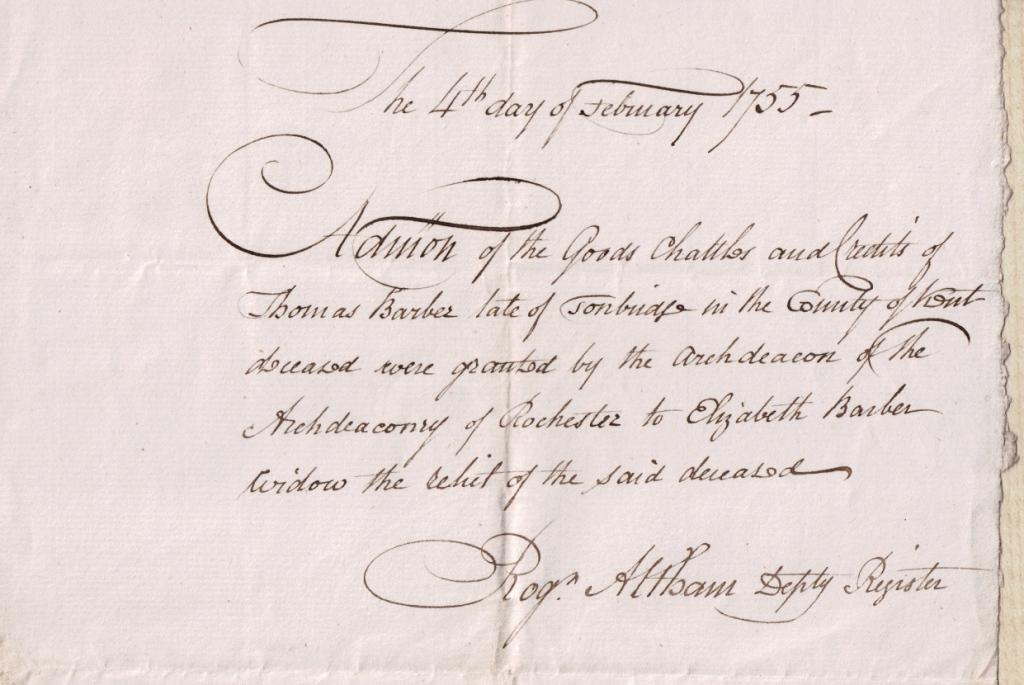 The 4th day of February 1755 -
Admõn of the Goods Chattles and Credits of
Thomas Barber late of Tonbridge in the County of Kent
deceased were granted by the Archdeacon of the
Archdeaconry of Rochester to Elizabeth Barber
Widow the relict of the said deceased
Rogr. Altham Depty Register